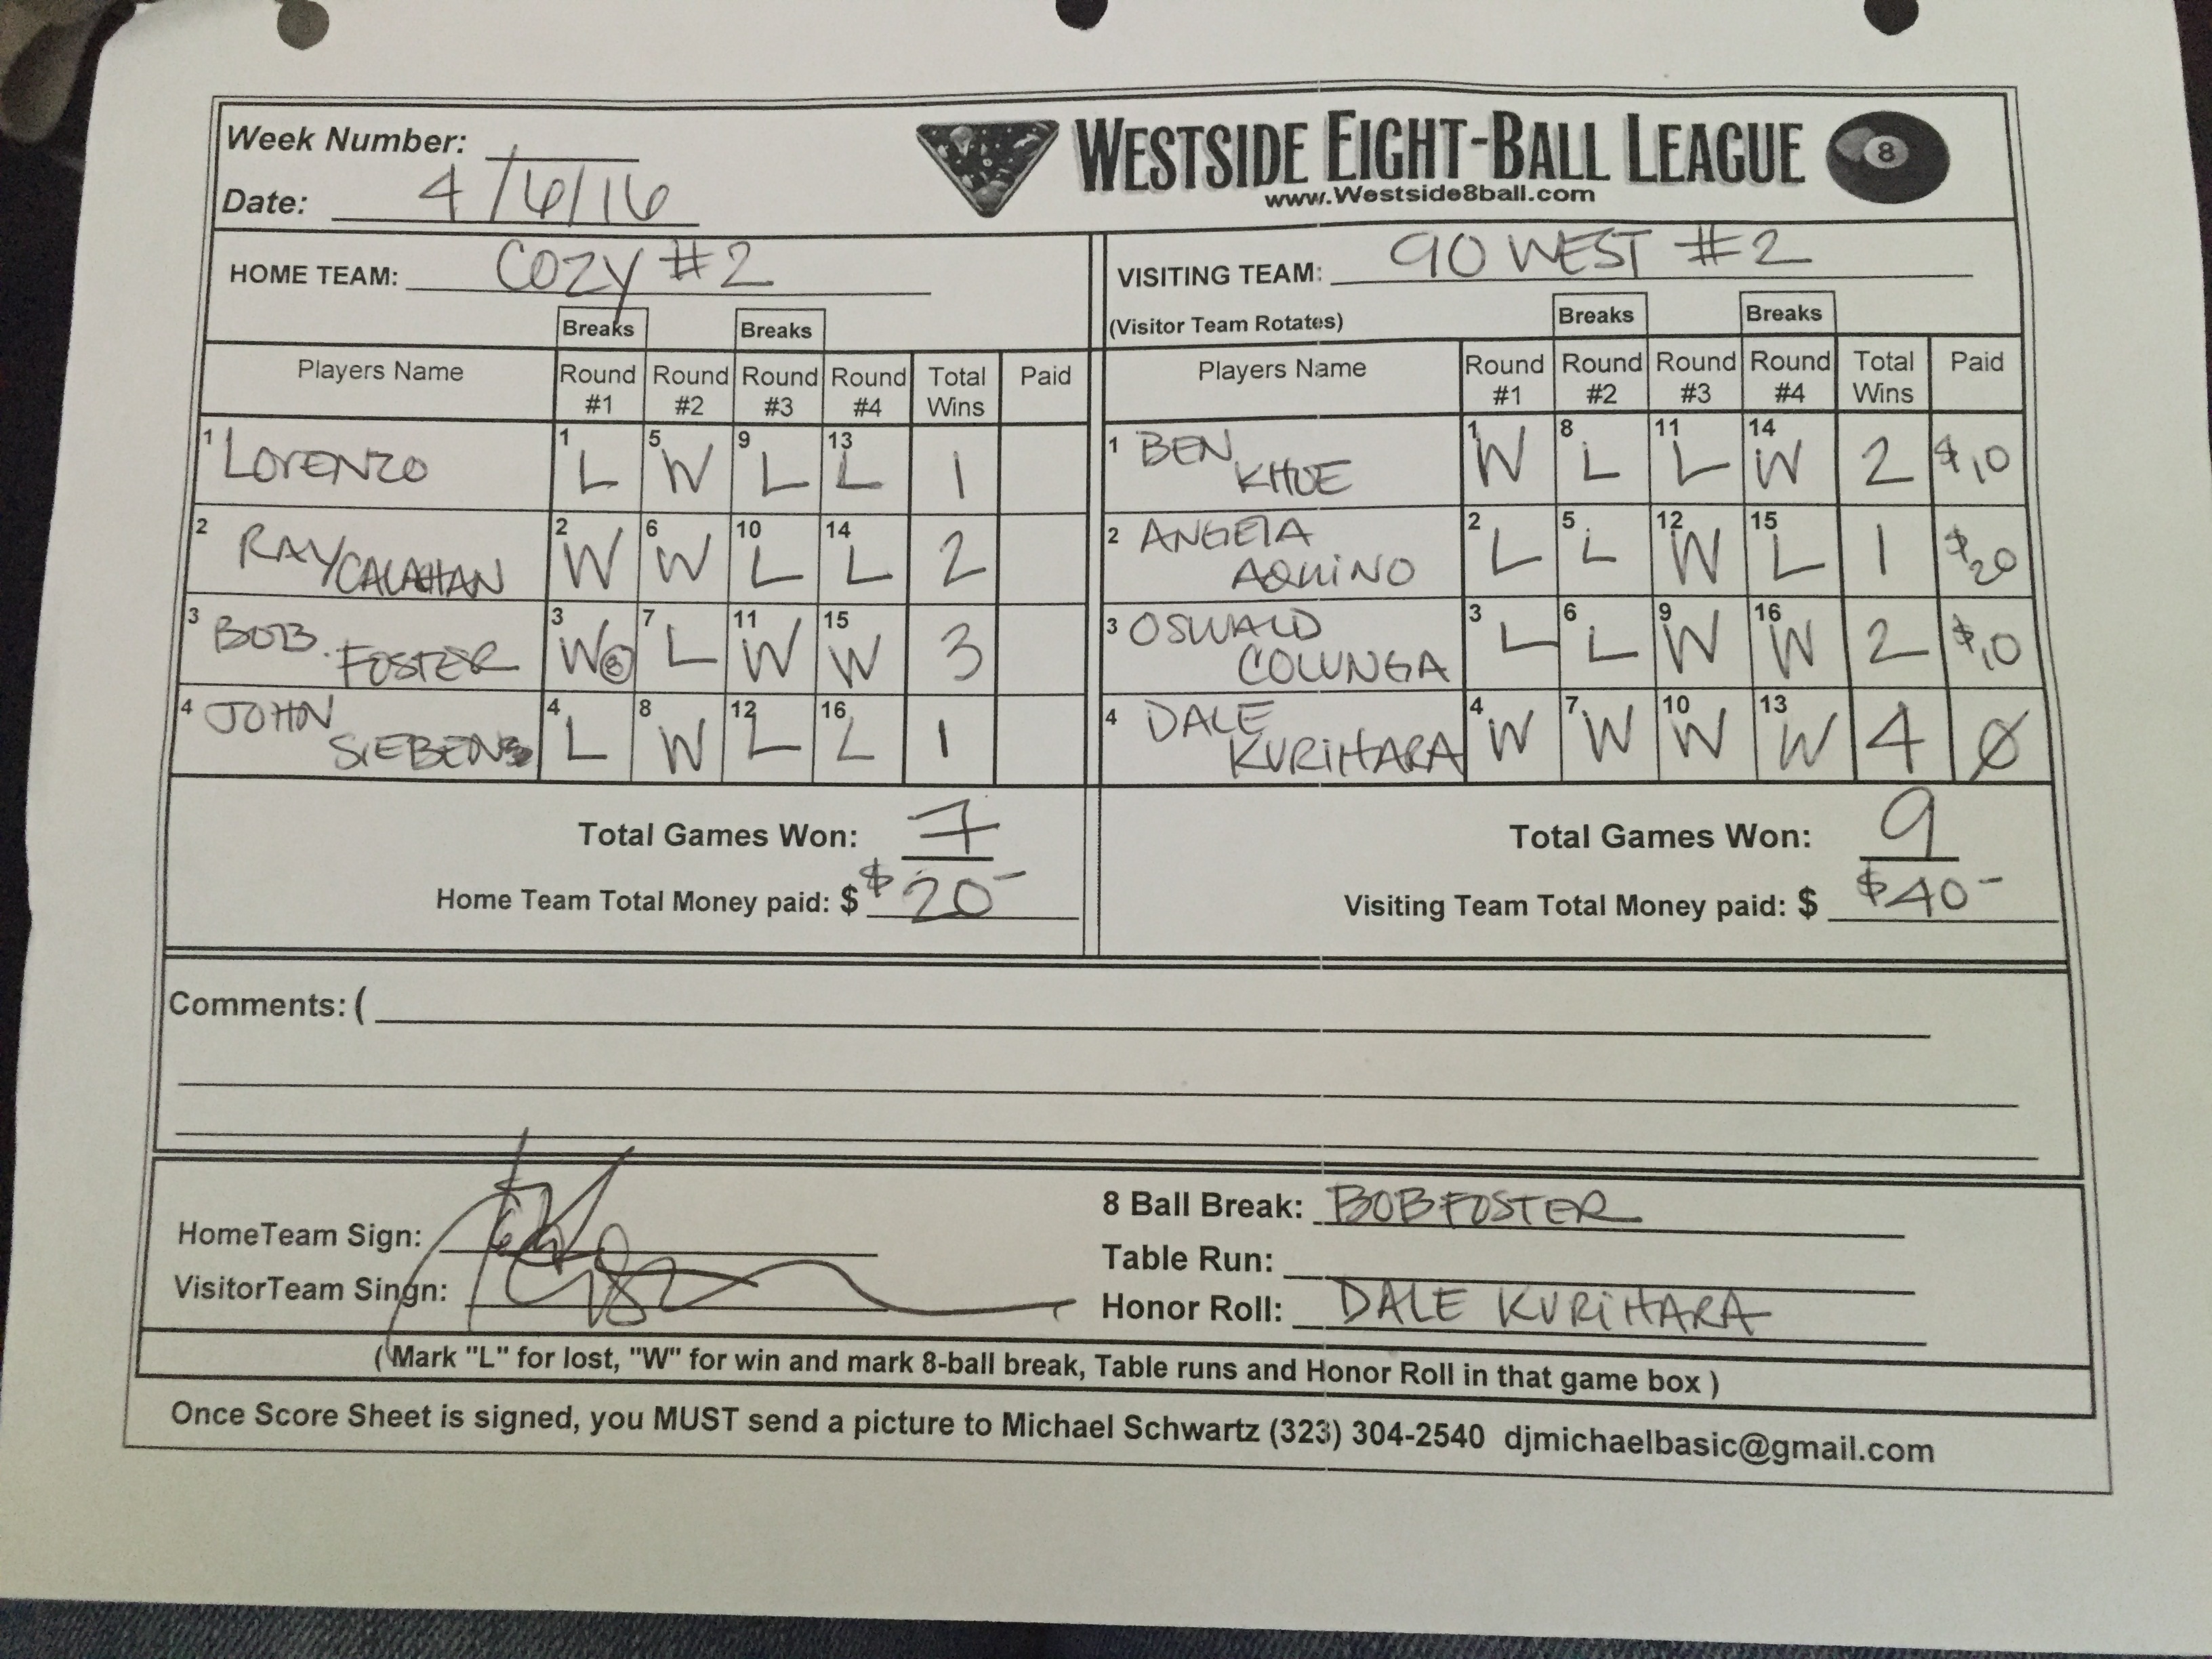 Week Number:
Date: 4/6/16
WESTSIDE EIGHT-BALL LEAGUE 8
www.Westside8ball.com
HOME TEAM: COZY #2
VISITING TEAM: 90 WEST #2
Breaks Breaks
(Visitor Team Rotates) Breaks Breaks
Players Name Round #1 Round #2 Round #3 Round #4 Total Wins Paid
1 LORENZO 1 L 5 W 9 L 13 L 1
2 RAY CALAHAN 2 W 6 W 10 L 14 L 2
3 BOB. FOSTER 3 W 8 7 L 11 W 15 W 3
4 JOHN SIEBENS 4 L 8 W 12 L 16 L 1
Total Games Won: 7
Home Team Total Money paid: $ $20-
Players Name Round #1 Round #2 Round #3 Round #4 Total Wins Paid
1 BEN KHOE 1 W 8 L 11 L 14 W 2 $10
2 ANGELA AQUINO 2 L 5 L 12 W 15 L 1 $20
3 OSWALD COLUNGA 3 L 6 L 9 W 16 W 2 $10
4 DALE KURIHARA 4 W 7 W 10 W 13 W 4 Ø
Total Games Won: 9
Visiting Team Total Money paid: $ $40-
Comments: (
HomeTeam Sign:
VisitorTeam Singn:
8 Ball Break: BOB FOSTER
Table Run:
Honor Roll: DALE KURIHARA
(Mark "L" for lost, "W" for win and mark 8-ball break, Table runs and Honor Roll in that game box )
Once Score Sheet is signed, you MUST send a picture to Michael Schwartz (323) 304-2540 djmichaelbasic@gmail.com